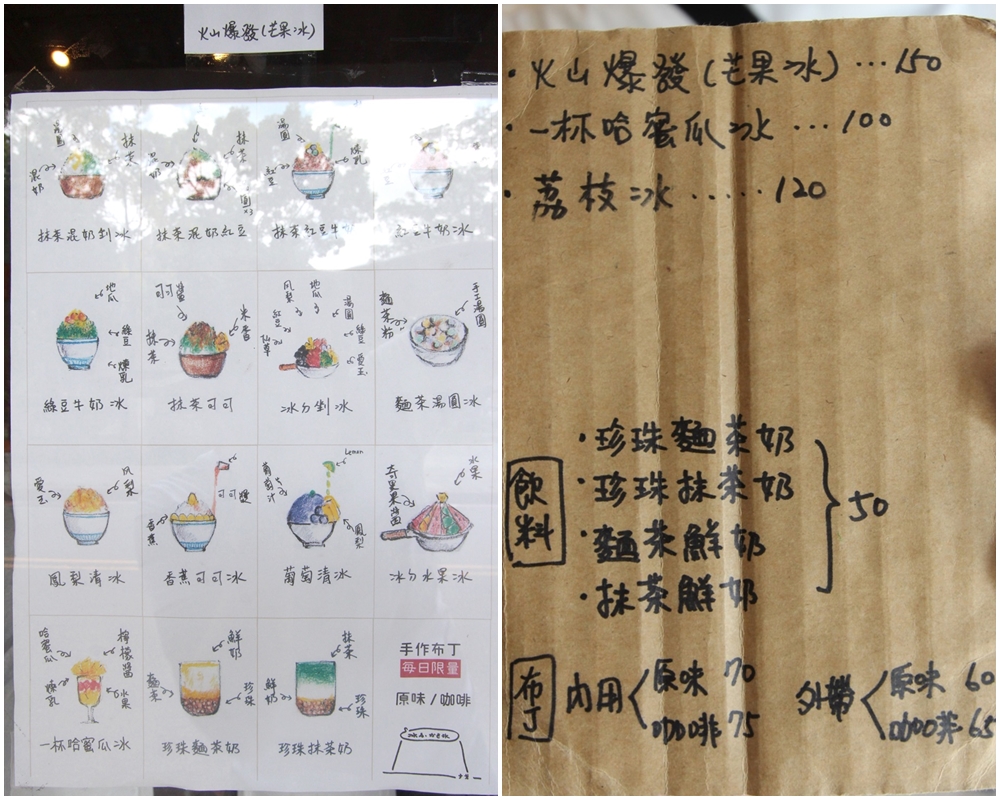 火山爆發(芒果冰)
抹茶
混奶
抹茶混奶剉冰
抹茶
抹茶混奶紅豆
湯圓
煉乳
紅豆
抹茶紅豆牛
紅豆牛奶冰
地瓜
綠豆
煉乳
綠豆牛奶冰
可可醬
米香
抹茶
抹茶可可
鳳梨
地瓜
湯圓
紅豆
綠豆
仙草
愛玉
冰勺剉冰
麵茶粉
手工湯圓
麵茶湯圓冰
愛玉
鳳梨
鳳梨清冰
可可醬
香蕉
香蕉可可冰
Lemon
葡萄汁
鳳梨
葡萄清冰
水果
奇異果醬
冰勺水果冰
哈蜜瓜
檸檬醬
煉乳
水果
一杯哈蜜瓜冰
鮮奶
麵茶
珍珠
珍珠麵茶奶
抹茶
鮮奶
珍珠
珍珠抹茶奶
手作布丁
每日限量
原味/咖啡
·火山爆發(芒果冰)...150
·一杯哈蜜瓜冰...100
·荔枝冰.....120
飲料
·珍珠麵茶奶
·珍珠抹茶奶
·麵茶鮮奶
·抹茶鮮奶
50
布丁
內用
原味 70
咖啡 75
外帶
原味 60
咖啡 65